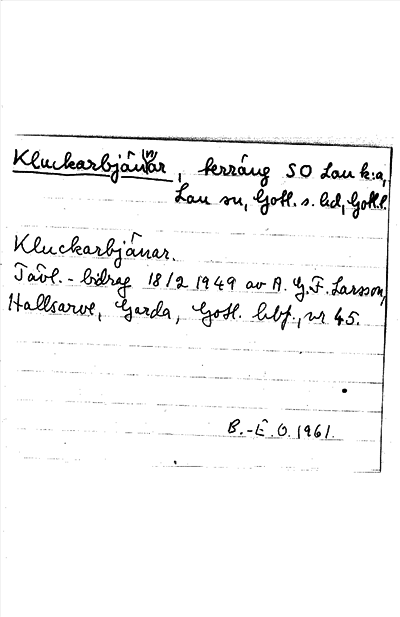 Kluckarbjän(n)ar, terräng SO Lau k:a,
Lau sn, Gotl. s. hd, Gotl. l.
Kluckarbjänar.
Tävl.-bidrag 18/2 1949 av A. G. F. Larsson,
Hallsarve, Garda, Gotl. bbf., nr 45.
B.-E. O. 1961.